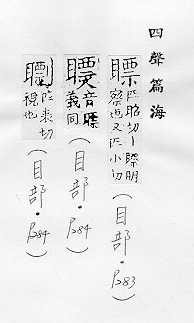 四聲篇海
瞟 匹昭切丨瞭明
察也又匹小切
(目部.P283)
音瞟
義同
(目部.P284)
匹表切
視也
(目部.P284)